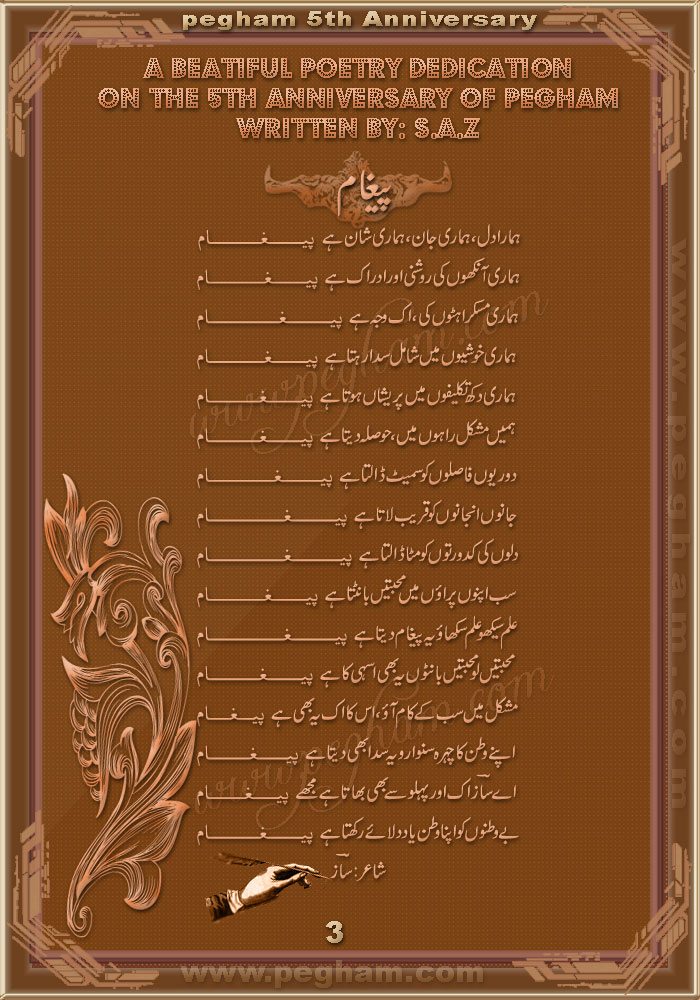 pegham 5th Anniversary
A BEATIFUL POETRY DEDICATION
ON THE 5TH ANNIVERSARY OF PEGHAM
WRITTEN BY: S.A.Z
پیغام
ہمارا دل، ہماری جان، ہماری شان ہے پیـــغـــام
ہماری آنکھوں کی روشنی اور ادراک ہے پیـــغـــام
ہماری مسکراہٹوں کی، اک وجہ ہے پیـــغـــام
ہماری خوشیوں میں شامل سدا رہتا ہے پیـــغـــام
ہماری دکھ تکلیفوں میں پریشاں ہوتا ہے پیـــغـــام
ہمیں مشکل راہوں میں، حوصلہ دیتا ہے پیـــغـــام
دوریوں فاصلوں کو سمیٹ ڈالتا ہے پیـــغـــام
جانوں انجانوں کو قریب لاتا ہے پیـــغـــام
دلوں کی کدورتوں کو مٹا ڈالتا ہے پیـــغـــام
سب اپنوں پراؤں میں محبتیں بانٹتا ہے پیـــغـــام
علم سیکھو علم سکھاؤ یہ پیغام دیتا ہے پیـــغـــام
محبتیں لو محبتیں بانٹوں یہ بھی اسہی کا ہے پیـــغـــام
مشکل میں سب کے کام آؤ، اس کا اک یہ بھی ہے پیـــغـــام
اپنے وطن کا چہرہ سنوارو یہ سدا بھی دیتا ہے پیـــغـــام
اے ساز اک اور پہلو سے بھی بھاتا ہے مجھے پیـــغـــام
بے وطنوں کو اپنا وطن یاد دلائے رکھتا ہے پیـــغـــام
شاعر: ساز
3
www.pegham.com
www.pegham.com
www.pegham.com
www.pegham.com